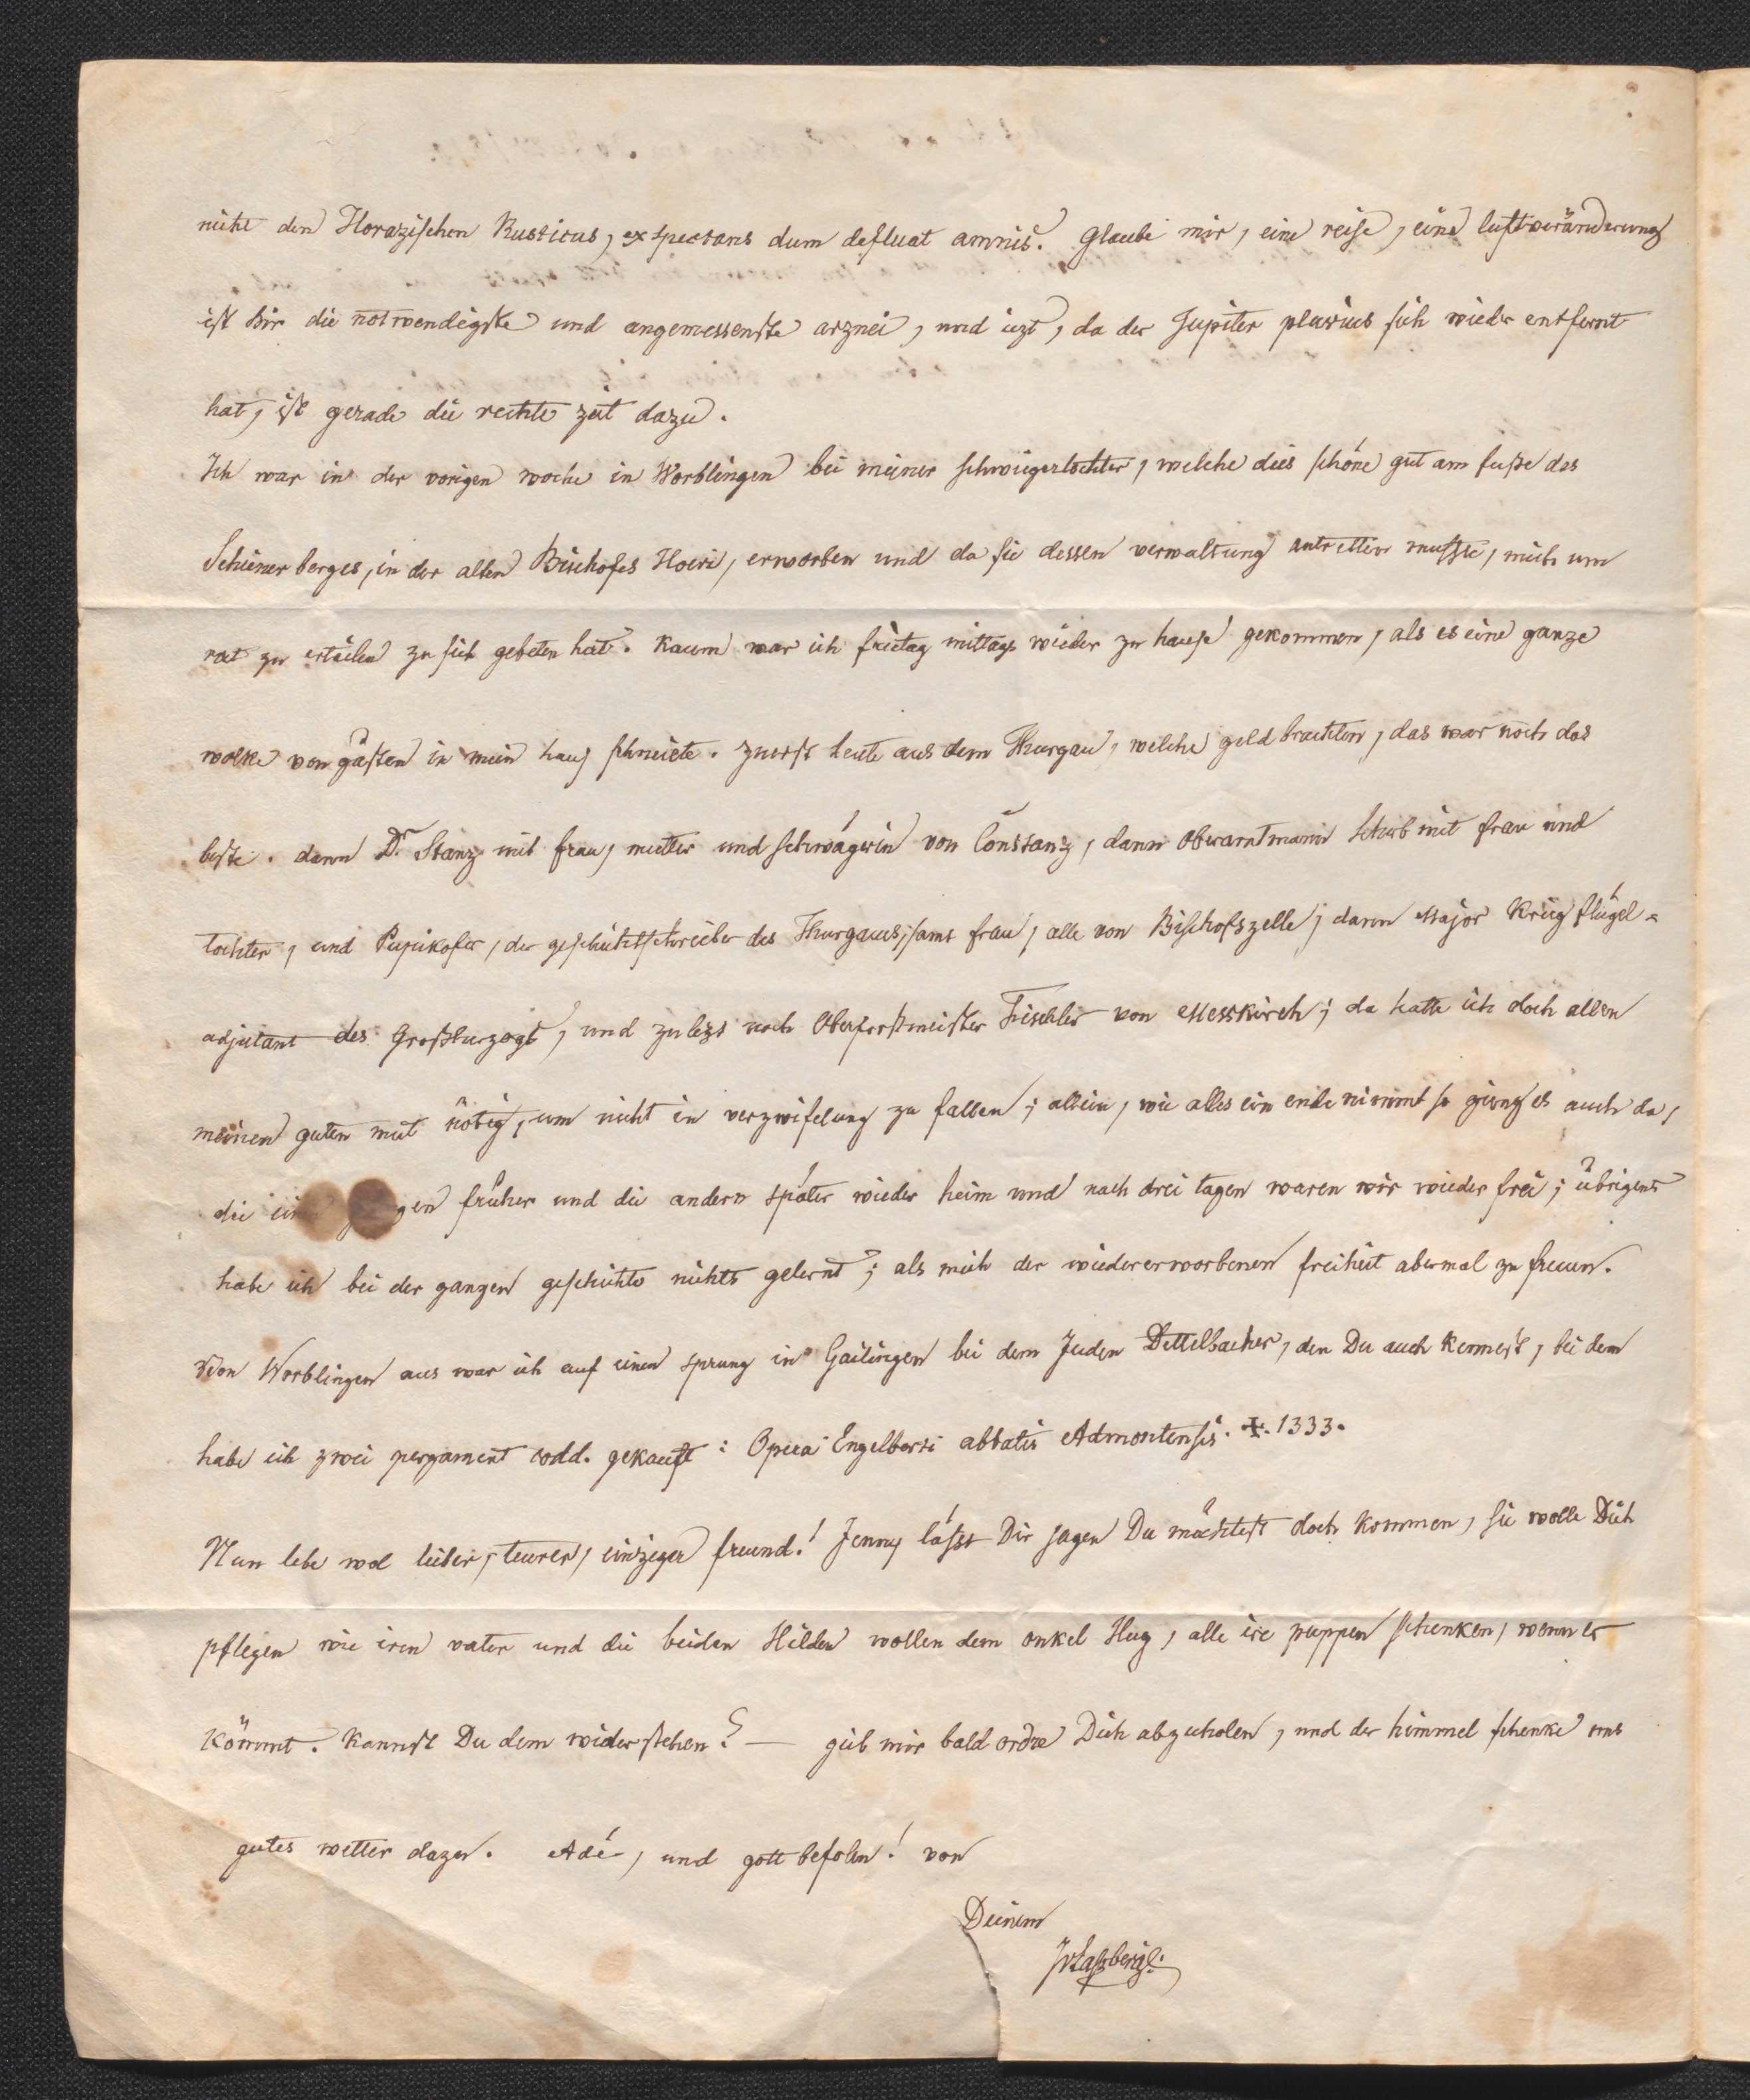 nicht den Horazischen Rusticus, exspectans dum defluat amnis. Glaube mir, eine reise, eine luftveränderung
ist dir die notwendigste und angemessenste arznei, und iezt, da der Jupiter pluvius sich wieder entfernt
hat, ist gerade die rechte zeit dazu.
Ich war in der vorigen woche in Worblingen bei meiner schwiegertochter, welche dies schöne gut am fuße des
Schiener berges, in der alten Bischofes Hoeri, erworben und da sie dessen verwaltung antretten musste, mich um
rat zu erteilen zu sich gebeten hat. kaum war ich freitag mittags wieder zu hause gekommen, als es eine ganze
wolke von gästen in mein haus schneiete. zuerst leute aus dem Thurgau, welche geld brachten, das war noch das
beste. dann Dr. Stanz mit frau, mutter und schwägerin von Constanz, dann Oberamtmann Scherb mit frau und
tochter, und Pupikofer, der geschichtschreiber des Thurgaus, samt frau, alle von Bischofszelle; dann Major Krieg flügel-
adjutant des Großherzogs, und zulezt noch Oberforstmeister Fischler von Messkirch; da hatte ich doch allen
meinen guten mut nötig, um nicht in verzwifelung zu fallen; allein, wie alles ein ende nimmt so gieng es auch da,
die früher und die andern später wieder heim und nach drei tagen waren wir wieder frei; übrigens
habe ich bei der ganzen geschichte nichts gelernt; als mich der wiedererworbenen freiheit abermal zu freuen.
Von Worblingen aus war ich auf einen sprung in Gailingen bei dem Juden Dettelbacher, den Du auch kennest, bei dem
habe ich zwei pergament codd. gekauft: Opera Engelberti abbatis Admontensis. ✠. 1333.
Nun lebe wol lieber, teurer, einziger freund! Jenny lässt Dir sagen Du möchtest doch kommen, sie wolle Dich
pflegen wie iren vater und die beiden Hilden wollen dem onkel Hug, alle ire puppen schenken, wenn er
kömmt. kannst Du dem widerstehen? — gieb mir bald ordre Dich abzuholen, und der himmel schenke uns
gutes wetter dazu. Adé, und gott befolen! von
Deinem
JvLaßberg.